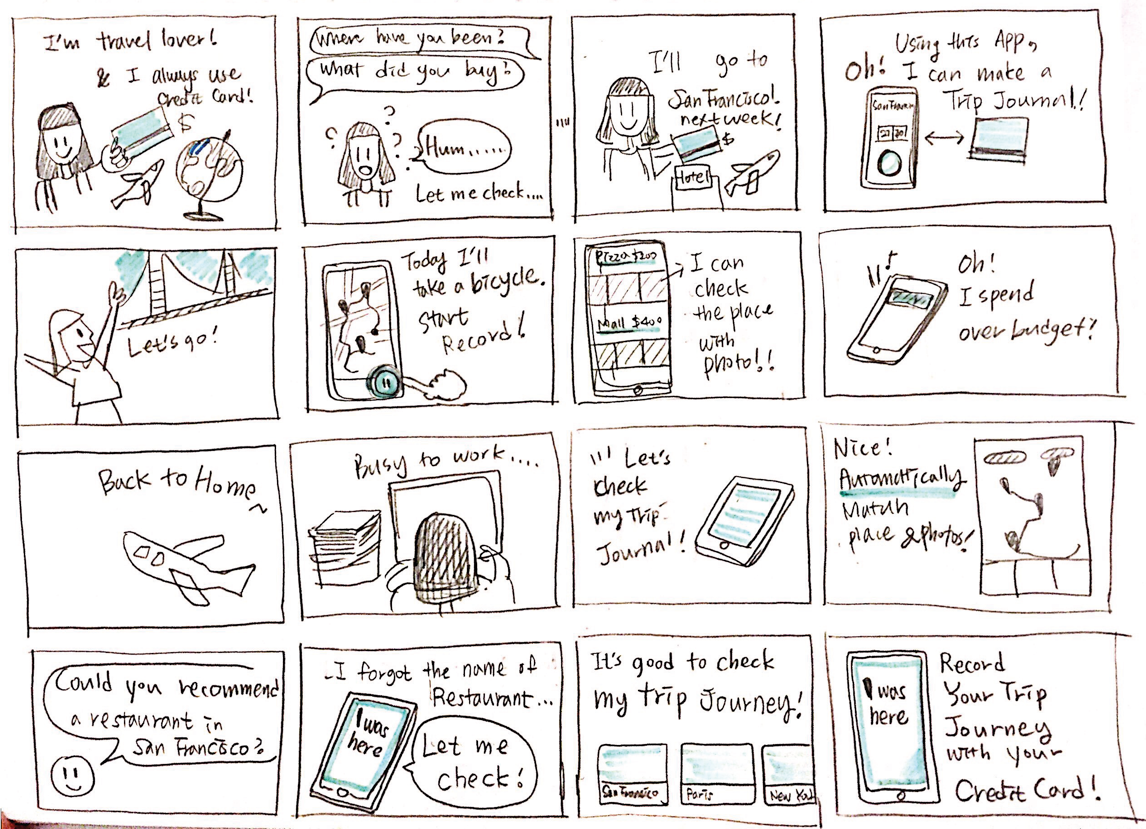 I'm travel lover!
& I always use
Credit Card!
$
Where have you been?
What did you buy?
? ? ? ?
Hum.....
Let me check....
I'll go to
San Francisco!
next week!
$
Hotel
Using this App,
Oh! I can make a
Trip Journal!
Let's go!
Today I'll
take a bicycle.
Start
Record!
Pizza $200
Mall $400
I can
check
the place
with
photo!!
Oh!
I spend
over budget?
Back to Home~
Busy to work....
Let's
check
my Trip
Journal!
Nice!
Automatically
Match
place & photos!
Could you recommend
a restaurant in
San Francisco?
..I forgot the name of
Restaurant...
I was
here
Let me
check!
It's good to check
my trip Journey!
San Francisco
Paris
New
I was
here
Record
Your Trip
Journey
with your
Credit Card!